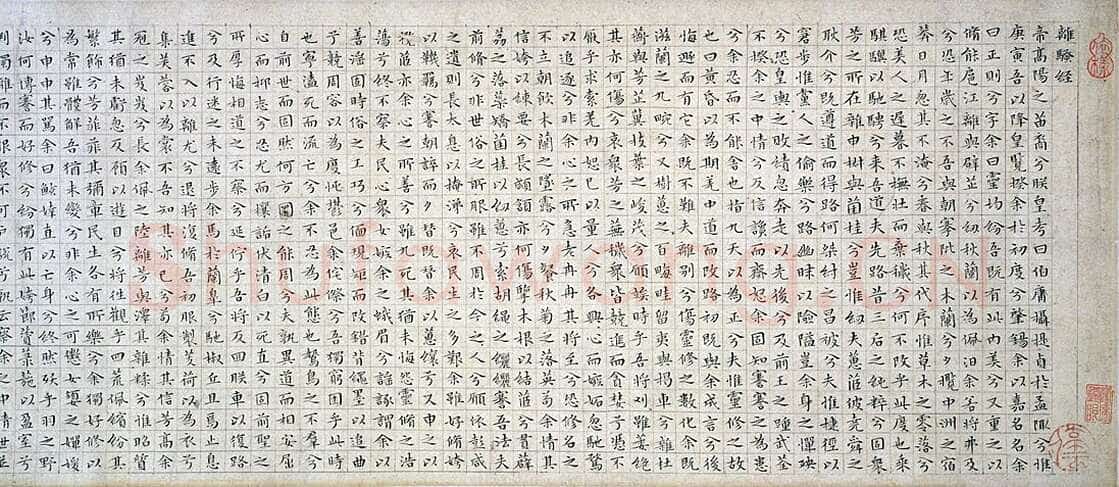 離騷經
帝高陽之苗裔兮朕皇考曰伯庸攝提貞於孟陬兮惟
庚寅吾以降皇覽揆余於初度兮肇錫余以嘉名名余
曰正則兮字余曰靈均紛吾既有此內美兮又重之以
脩能扈江離與辟芷兮紉秋蘭以為佩汨余若將弗及
兮恐年歲之不吾與朝搴阰之木蘭兮夕攬中洲之宿
莽日月忽其不淹兮春與秋其代序惟草木之零落兮
恐美人之遲暮不撫壯而棄穢兮何不改乎此度也乘
騏驥以馳騁兮來吾道夫先路昔三后之純粹兮固衆
芳之所在雜申椒與菌桂兮豈惟紉夫蕙茝彼堯舜之
耿介兮既遵道而得路何桀紂之昌被兮夫惟捷徑以
窘步惟黨人之偷樂兮路幽昧以險隘豈余身之憚殃
兮恐皇輿之敗績忽奔走以先後兮及前王之踵武荃
不揆余之中情兮反信讒而齌怒余固知謇謇之為患
兮余忍而不能舍也指九天以為正兮夫惟靈脩之故
也曰黃昏以為期羌中道而改路初既與余成言兮後
悔遁而有它余既不難夫離別兮傷靈脩之數化余既
滋蘭之九畹兮又樹蕙之百畮畦留夷與揭車兮雜杜
蘅與芳芷冀枝葉之峻茂兮願竢時乎吾將刈雖萎絕
其亦何傷兮哀衆芳之蕪穢衆皆競進而貪婪兮憑不
厭乎求索羌內恕己以量人兮各興心而嫉妬忽馳騖
以追逐兮非余心之所急老冉冉其將至兮恐脩名之
不立朝飲木蘭之墜露兮夕餐秋菊之落英苟余情其
信姱以練要兮長顑頷亦何傷擥木根以結茝兮貫薜
荔之落蕊矯菌桂以紉蕙兮索胡繩之纚纚謇吾法夫
前脩兮非世俗之所服雖不周於今之人兮願依彭咸
之遺則長太息以掩涕兮哀民生之多艱余雖好脩姱
以鞿羈兮謇朝誶而夕替既替余以蕙纕兮又申之以
攬茝亦余心之所善兮雖九死其猶未悔怨靈脩之浩
蕩兮終不察夫民心衆女嫉余之蛾眉兮謠諑謂余以
善淫固時俗之工巧兮偭規矩而改錯背繩墨以追曲
兮競周容以為度忳鬱邑余侘傺兮吾獨窮困乎此時
也寧溘死而流亡兮余不忍為此態也鷙鳥之不羣兮
自前世而固然何方圜之能周兮夫孰異道而相安屈
心而抑志兮忍尤而攘詬伏清白以死直兮固前聖之
所厚悔相道之不察兮延佇乎吾將反回朕車以復路
兮及行迷之未遠步余馬於蘭皋兮馳椒丘且焉止息
進不入以離尤兮退將復脩吾初服製芰荷以為衣兮
集芙蓉以為裳不吾知其亦已兮苟余情其信芳高余
冠之岌岌兮長余佩之陸離芳與澤其雜糅兮惟昭質
其猶未虧忽反顧以遊目兮將往觀乎四荒佩繽紛其
繁飾兮芳菲菲其彌章民生各有所樂兮余獨好脩以
為常雖體解吾猶未變兮豈余心之可懲女嬃之嬋媛
兮申申其詈予曰鮌婞直以亡身兮終然殀乎羽之野
汝何博謇而好脩兮紛獨有此姱節薋菉葹以盈室兮
判獨離而不服衆不可戶說兮孰云察余之中情世並